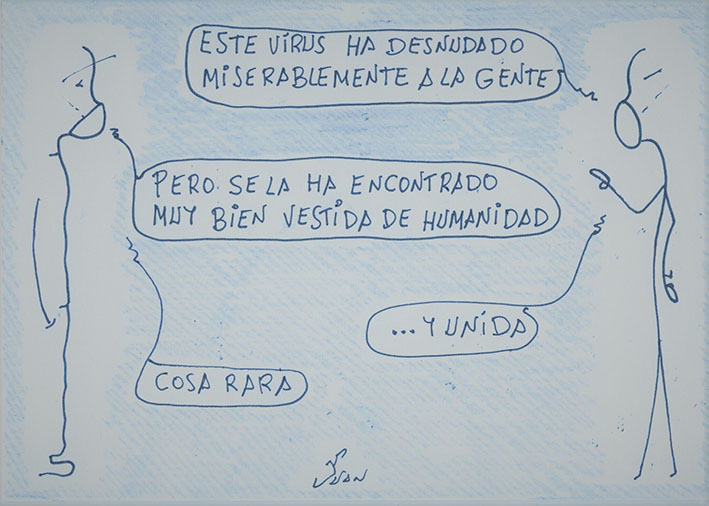 ESTE VÍRUS HA DESNUDADO
MISERABLEMENTE A LA GENTE
PERO SE LA HA ENCONTRADO
MUY BIEN VESTIDA DE HUMANIDAD
...Y UNIDA
COSA RARA
JUAN